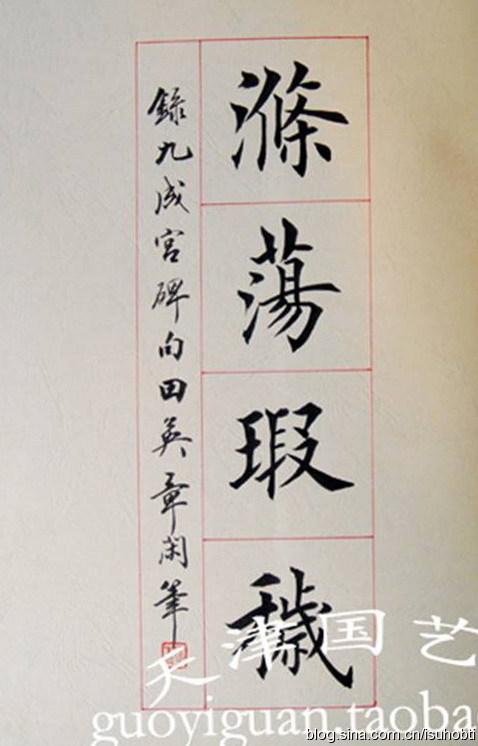 滌蕩瑕穢
錄九成宮碑向田英章閑筆
天津国艺
guoyiguan.taobao
blog.sina.com.cn/isuhobti